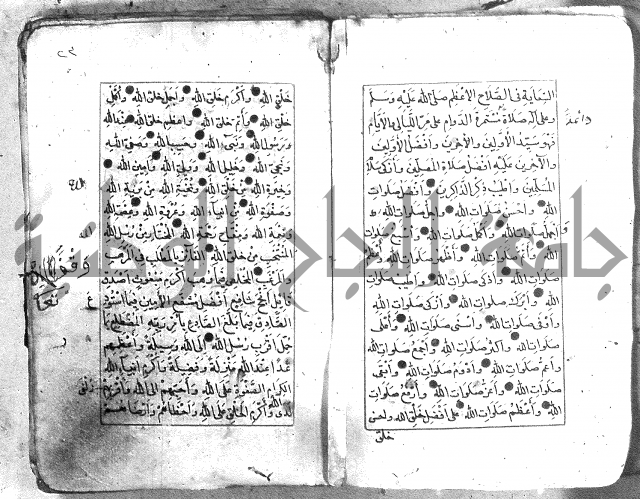 النهاية في الفلاح الاعظم صلى الله عليه وسلم
وعلى آله صلاة مستمرة الدوام على مر الليالي والأيام
دائمة
فهو سيد الأولين والآخرين وأفضل الأولين
والآخرين عليه افضل صلاة المصلين وأزكى سلام
المسلمين واطيب ذكر الذاكرين وأفضل صلوات
الله وأحسن صلوات الله وأجل صلوات الله
وأجمل صلوات الله وأكمل صلوات الله وأسبغ صلوات
الله وأتم صلوات الله وأظهر صلوات الله وأعظم
صلوات الله وأذكى صلوات الله وأطيب صلوات
الله وأبرك صلوات الله وأزكى صلوات الله
وأوفى صلوات الله وأسنى صلوات الله وأعلى
صلوات الله وأكثر صلوات الله وأجمع صلوات الله
وأعم صلوات الله وأدوم صلوات الله وأبقى
صلوات الله وأعز صلوات الله وأرفع صلوات
الله وأعظم صلوات الله على أفضل خلق الله وأحسن
خلق
٢٣
خلق الله وأكرم خلق الله وأجمل خلق الله وأكمل
خلق الله وأتم خلق الله وأعظم خلق الله عند الله
ورسول الله ونبي الله وحبيب الله وصفي الله
ونجي الله وخليل الله وولي الله وأمين الله
وخيرة الله من خلق الله ونخبة الله من برية الله
وصفوة الله من أنبياء الله وعروة الله وعصمة الله
ونعمة الله ومفتاح رحمة الله المختار من رسل الله
المنتخب من خلق الله الفائز بالمطلب في المرهب
والمرغب المخلص فيما وهب أكرم مبعوث أصدق
قائل أنجح شافع أفضل مشفع الأمين فيما استودع
الصادق فيما بلغ الصادع بأمر ربه المضطلع بما
حمل أقرب رسل الله إلى الله وسيلة وأعظمهم
غدا عند الله منزلة وفضيلة وأكرم أنبياء الله
الكرام الصفوة على الله وأحبهم إلى الله وأقربهم
زلفى
لدى الله وأكرم الخلق على الله وأحظاهم وأرضاهم
جامعة النجاح الوطنية